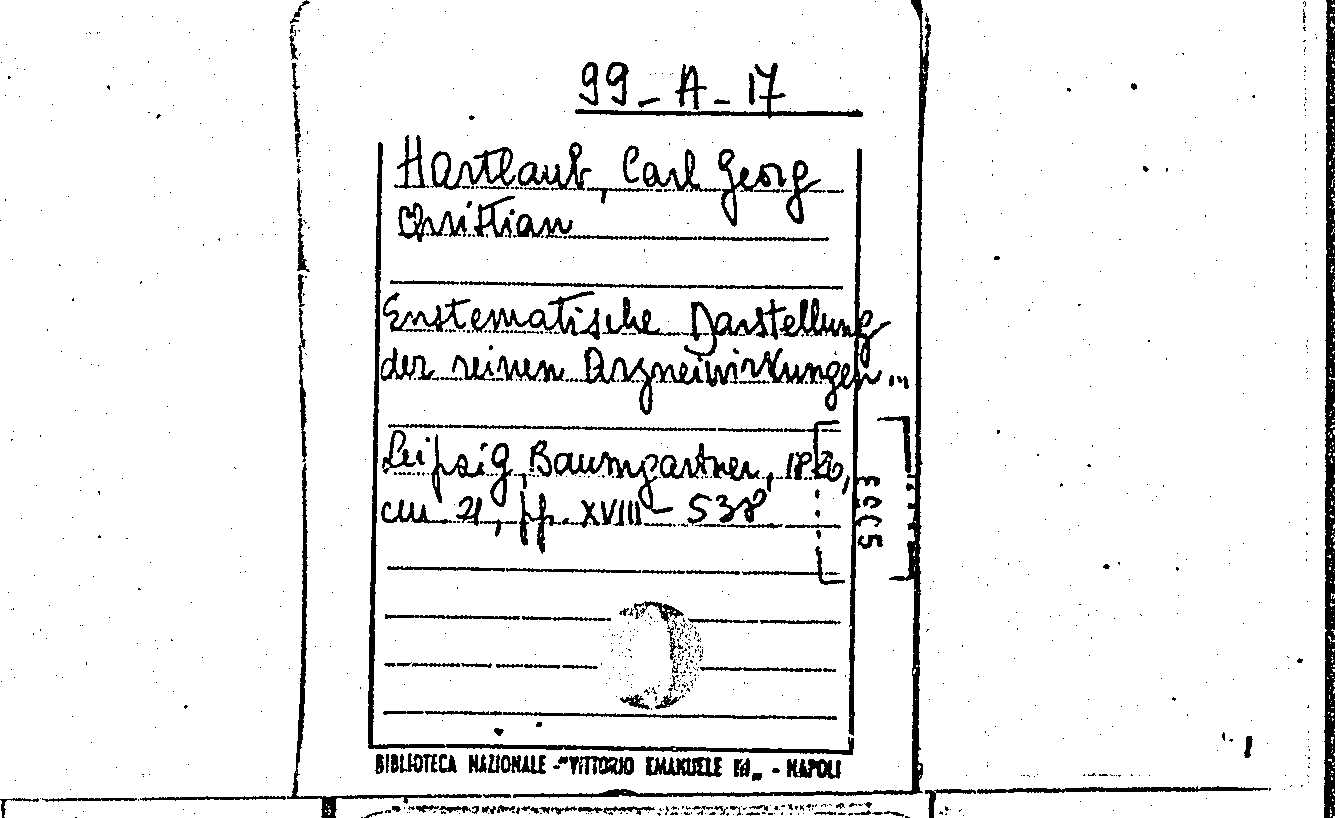 99-A-17
Hartlaub, Carl Georg
Christian
Enstematische Darstellung
der reinen Arzneiwirkungen...
Leipzig, Baumgartner, 1826,
cm 21, pp. XVIII - 538
BIBLIOTECA NAZIONALE - "VITTORIO EMANUELE III„ - NAPOLI